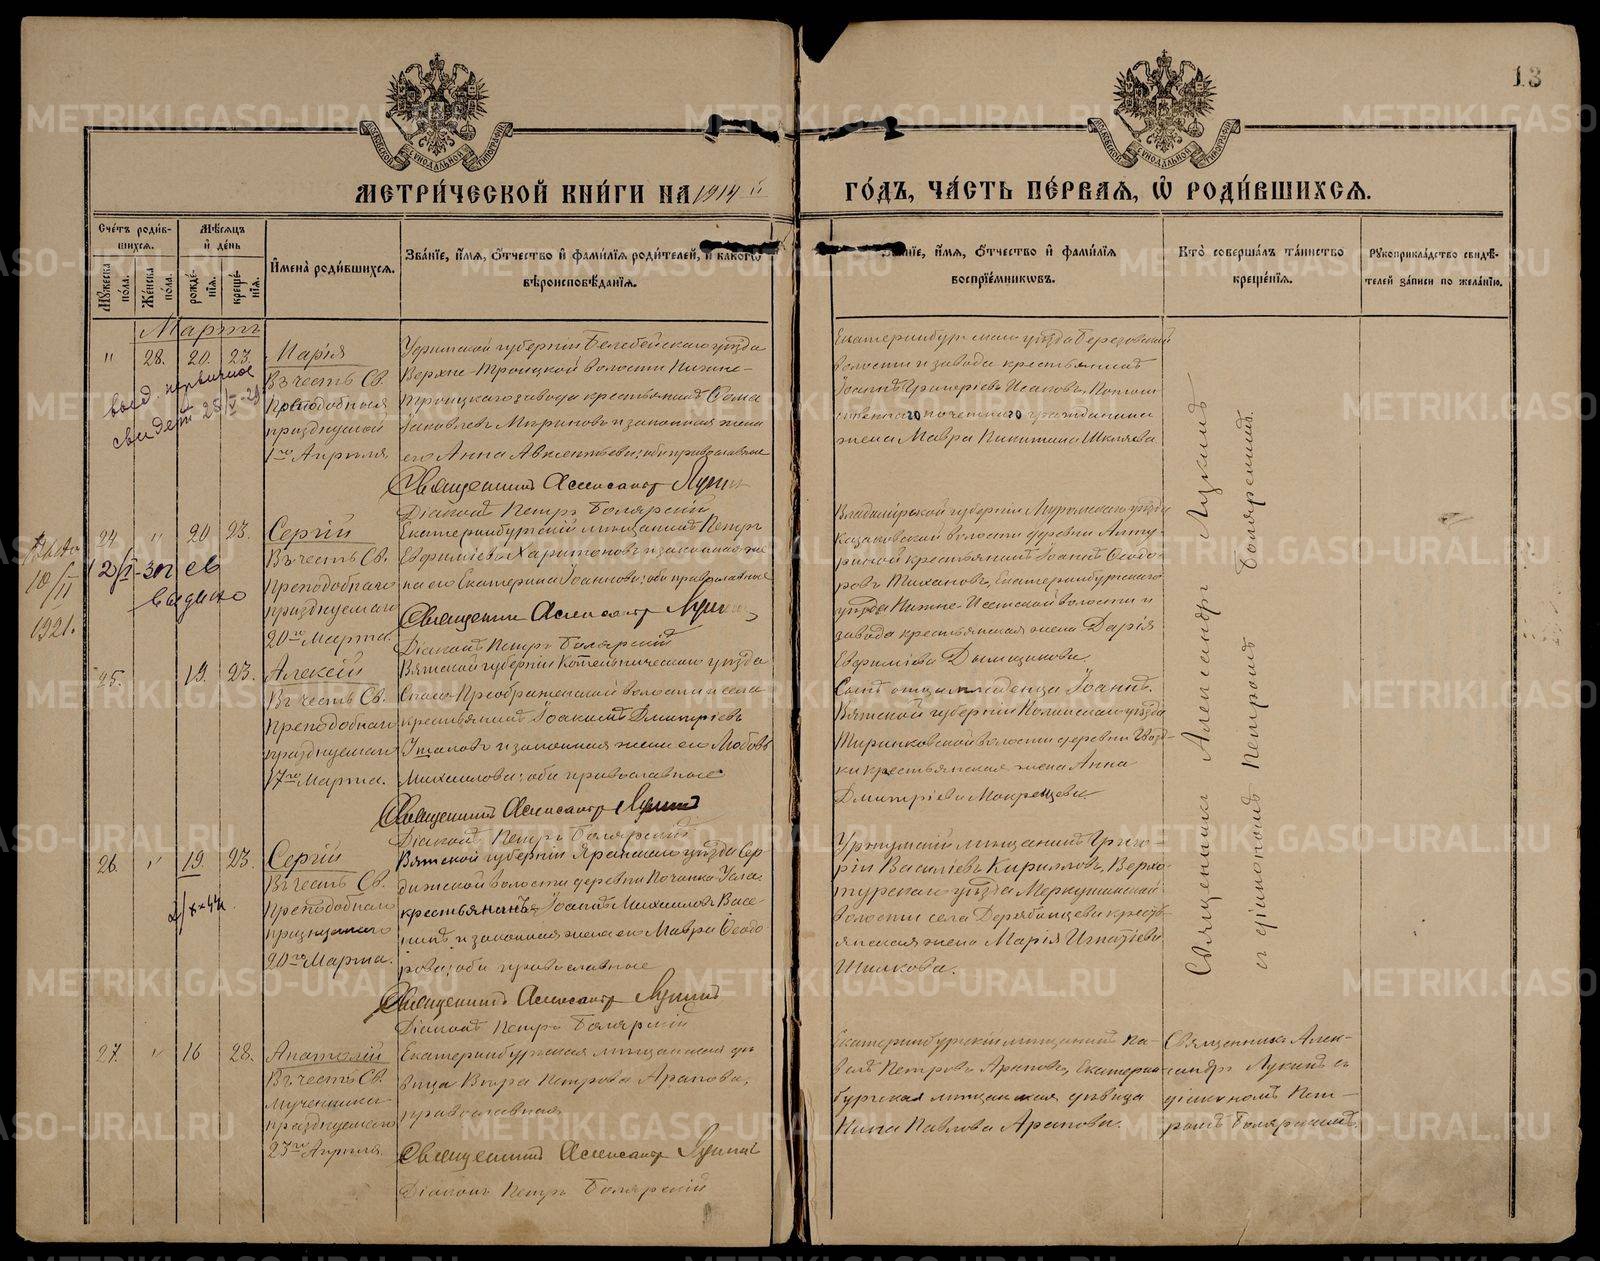 13
МОСКОВСКОЙ СѴНОДАЛЬНОЙ ТИПОГРАФІИ
МОСКОВСКОЙ СѴНОДАЛЬНОЙ ТИПОГРАФІИ
МЕТРИ́ЧЕСКОЙ КНИ́ГИ НА 1914 й
ГО́ДЪ, ЧА́СТЬ ПЕ́РВАѦ, Ѡ҆ РОДИ́ВШИХСѦ.
Сче́тъ роди́в-
шихсѧ.
Мꙋ́жеска по́ла.
Же́нска по́ла.
Мѣ́сѧцъ
и҆ де́нь
рожде́-
нїѧ.
креще́-
нїѧ.
И҆мена̀ роди́вшихсѧ.
Зва́нїе, и҆́мѧ, ѻ҆́тчество и҆ фами́лїѧ роди́телей, и҆ како́гѡ
вѣроисповѣ́данїѧ.
и҆́мѧ, ѻ҆́тчество и҆ фами́лїѧ
воспрїе́мникѡвъ.
Кто̀ соверша́лъ та́инство
креще́нїѧ.
Рꙋкоприкла́дство свидѣ́-
телей за́писи по жела́нїю.
Мартъ
" 28. 20. 23. Марія
Въ честь Св.
Преподобныя
празднуемой
1го Апрѣля.
Уфимской губерніи Белебейскаго уѣзда
Верхне-Троицкой волости Нижне-
троицкаго завода крестьянинъ Ѳома
Іаковлевъ Мироновъ и законная жена
его Анна Авксентьева; оба православные
Священникъ Александръ Лукинъ
Діаконъ Петръ Боярскій
выд. первичное
свидет 25/V-29
Екатеринбургскаго уѣзда Березовской
волости и завода крестьянинъ
Іоаннъ Григоріевъ Исаковъ, Потом
ственнаго почетнаго гражданина
жена Мавра Никитина Шкляева.
24 " 20 23. Сергій
Въ честь Св.
Преподобнаго
празднуемаго
20го Марта.
Екатеринбургскій мѣщанинъ Петръ
Евфиміевъ Харитоновъ и законная же
на его Екатерина Іоаннова; оба православные
Священникъ Александръ Лукинъ
Діаконъ Петръ Боярскій
10/II
1921.
св
выдано
Владимірской губерніи Муромскаго уѣзда
Казаковской волости деревни Алту
ниной крестьянинъ Іоаннъ Ѳеодо-
ровъ Тихановъ, Екатеринбургскаго
уѣзда Нижне-Исетской волости и
завода крестьянская жена Дарія
Евфиміева Дымщикова.
25. 19. 23. Алексій
Въ честь Св.
Преподобнаго
празднуемаго
17го Марта.
Вятской губерніи Котельническаго уѣзда
Спасо-Преображенской волости и села
крестьянинъ Іоакимъ Дмитріевъ
Ушаловъ и законная жена его Любовь
Михаилова; оба православные
Священникъ Александръ Лукинъ
Діаконъ Петръ Боярскій
Сынъ отца младенца Іоаннъ.
Вятской губерніи Нолинскаго уѣзда
крестьянская жена Анна
Дмитріева Мокрецова
26. " 19. 23. Сергій
Въ честь Св.
Преподобнаго
празднуемаго
20го Марта.
Вятской губерніи Яранскаго уѣзда Сер
дижской волости деревни Починка
крестьянинъ Іоаннъ Михаиловъ Васе-
нинъ и законная жена его Мавра Ѳеодо
рова; оба православные
Священникъ Александръ Лукинъ
Діаконъ Петръ Боярскій
Уржумскій мѣщанинъ Григо-
рій Василіевъ Кирилловъ, Верхо-
турскаго уѣзда Меркушинской
волости села Дерябинцева кресть-
янская жена Марія Игнатіева
Шишкова.
Священникъ Александръ Лукинъ
съ діакономъ Петромъ Боярскимъ.
27. " 16 28. Анатолій
Въ честь Св.
мученика
празднуемаго
23го Апрѣля.
Екатеринбургская мѣщанская дѣ
вица Вѣра Петрова Арапова,
православная
Священникъ Александръ Лукинъ
Діаконъ Петръ Боярскій
Екатеринбургскій мѣщанинъ Па-
велъ Петровъ Араповъ, Екатерин-
бургская мѣщанская дѣвица
Нина Павлова Арапова.
Священникъ Алек-
сандръ Лукинъ съ
діакономъ Пет-
ромъ Боярскимъ.
METRIKI.GASO-URAL.RU